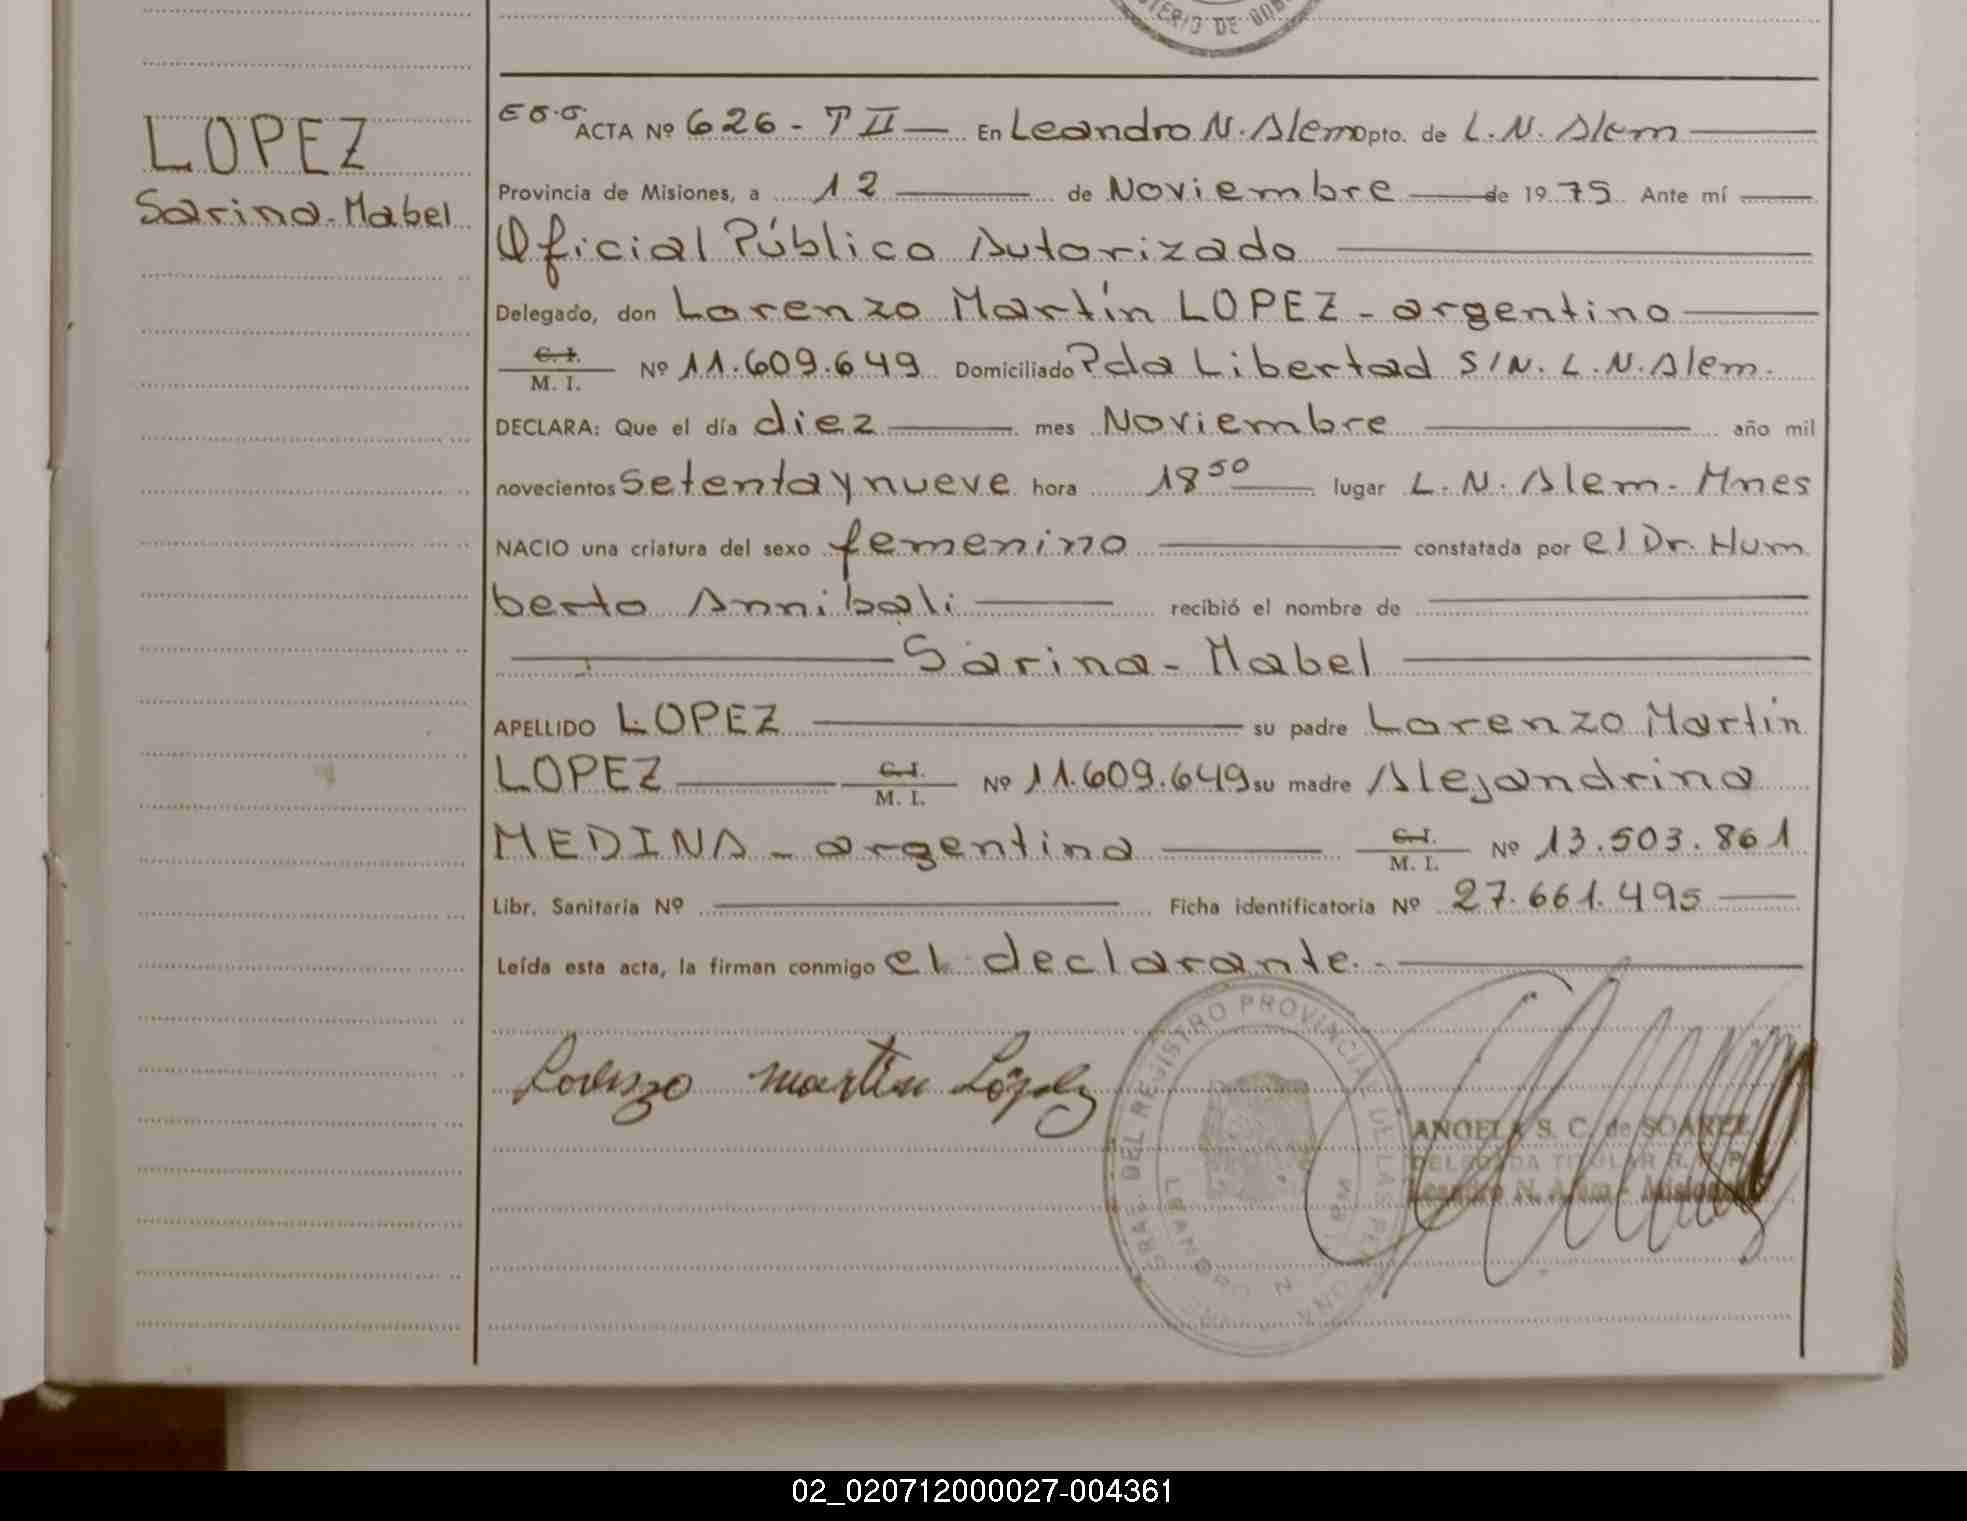 MISTERIO DE GOB
LOPEZ
Sarina-Mabel
ACTA Nº 626 - T II — En Leandro N. Alem Dpto. de L. N. Alem
Provincia de Misiones, a 12 de Noviembre de 1979 Ante mí
Oficial Público Autorizado
Delegado, don Lorenzo Martín LOPEZ - argentino
C. I. / M. I. Nº 11.609.649 Domiciliado Pda Libertad S/N. L. N. Alem.
DECLARA: Que el día diez mes Noviembre año mil
novecientos setenta y nueve hora 18 50 lugar L. N. Alem - Mnes
NACIO una criatura del sexo femenino constatada por el Dr. Hum
berto Annibali recibió el nombre de
Sarina - Mabel
APELLIDO LOPEZ su padre Lorenzo Martín
LOPEZ C. I. / M. I. Nº 11.609.649 su madre Alejandrina
MEDINA - argentina C. I. / M. I. Nº 13.503.861
Libr. Sanitaria Nº Ficha identificatoria Nº 27.661.495
Leída esta acta, la firman conmigo el declarante. -
Lorenzo Martin López
DEL REGISTRO PROVINCIAL DE LAS
LEANDRO N
ANGELA S. C. de SOAREZ
DELEGADA TITULAR R. P. P.
Leandro N. Alem - Misiones
02_020712000027-004361